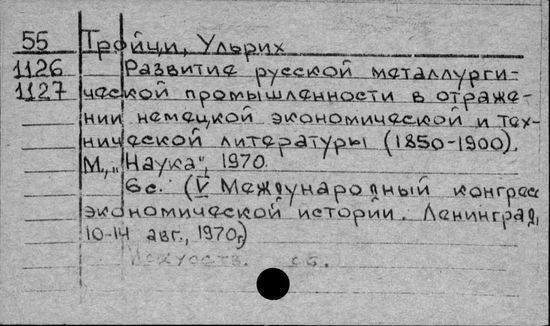 55 Тройци, Ульрих
1126 Развитие русской металлурги-
1127 ческой промышленности в отраже-
нии немецкой экономической и тех-
нической литературы (1850-1900).
М., "Наука", 1970.
6 с. (V Международный конгресс
экономической истории. Ленинград,
10-14 авг., 1970г.)